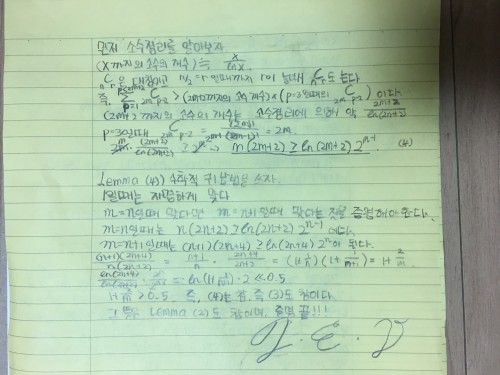 먼저 소수정리를 알아보자
(x까지의 소수의 개수) ≒ x / ln x
nCr은 대칭이고 n/2=r 일때까지 r이 늘때 nCr도 는다.
즉, Σ 2mCp-2 > (2m+2까지의 소수 개수) × (p=3일때의 2mCp-2) 이다.
(2m+2까지의 소수의 개수는 소수정리에 의해 약 2m+2 / ln(2m+2)
p=3일때 2mCp-2 = (2m)! / 1!(2m-1)! = 2m.
2m · (2m+2) / ln(2m+2) ≥ 2^n, m(2m+2) ≥ ln(2m+2) 2^n-1 (4)
Lemma (4) 수학적 귀납법을 쓰자.
1일때는 자명하게 맞다
m=n일때 맞다면 m=n+1일때 맞다는 것을 증명해야 한다.
m=n일때는 n(2n+2) ≥ ln(2n+2) 2^n-1 이다.
m=n+1일때는 (n+1)(2n+4) ≥ ln(2n+4) 2^n이 된다.
(n+1)(2n+4) / n(2n+2) = n+1 / n · 2n+4 / 2n+2 = (1+1/n)(1+1/n+1) = 1+2/n
· 2 ≪ 0.5
> 0.5 즉, (4)는 참, 즉 (3)도 참이다.
Lemma (2)도 참이며, 증명 끝!!!
Q. E. D